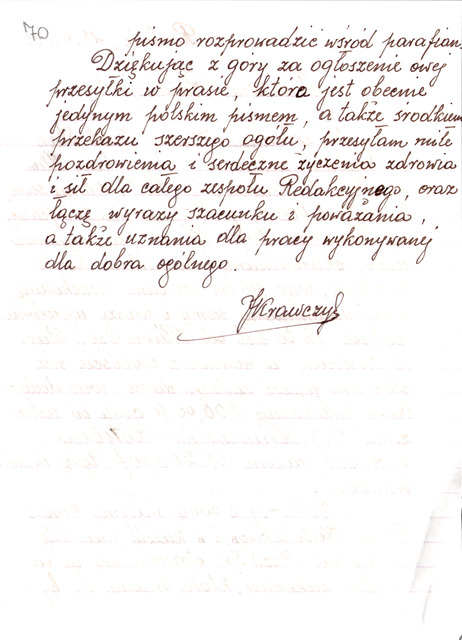 70
pismo rozprowadzić wśród parafian.
Dziękując z góry za ogłoszenie owej
przesyłki w prasie, która jest obecnie
jedynym polskim pismem, a także środkiem
przekazu szerszego ogółu, przesyłam miłe
pozdrowienia i serdeczne życzenia zdrowia
i sił dla całego zespołu Redakcyjnego, oraz
łączę wyrazy szacunku i poważania,
a także uznania dla pracy wykonywanej
dla dobra ogólnego.
JKrawczyk